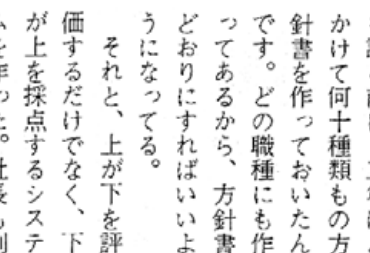 かけて何十種類もの方
針書を作っておいたん
です。どの職種にも作
ってあるから、方針書
どおりにすればいいよ
うになってる。
それと、上が下を評
価するだけでなく、下
が上を採点するシステ
ムを作った。社長も別